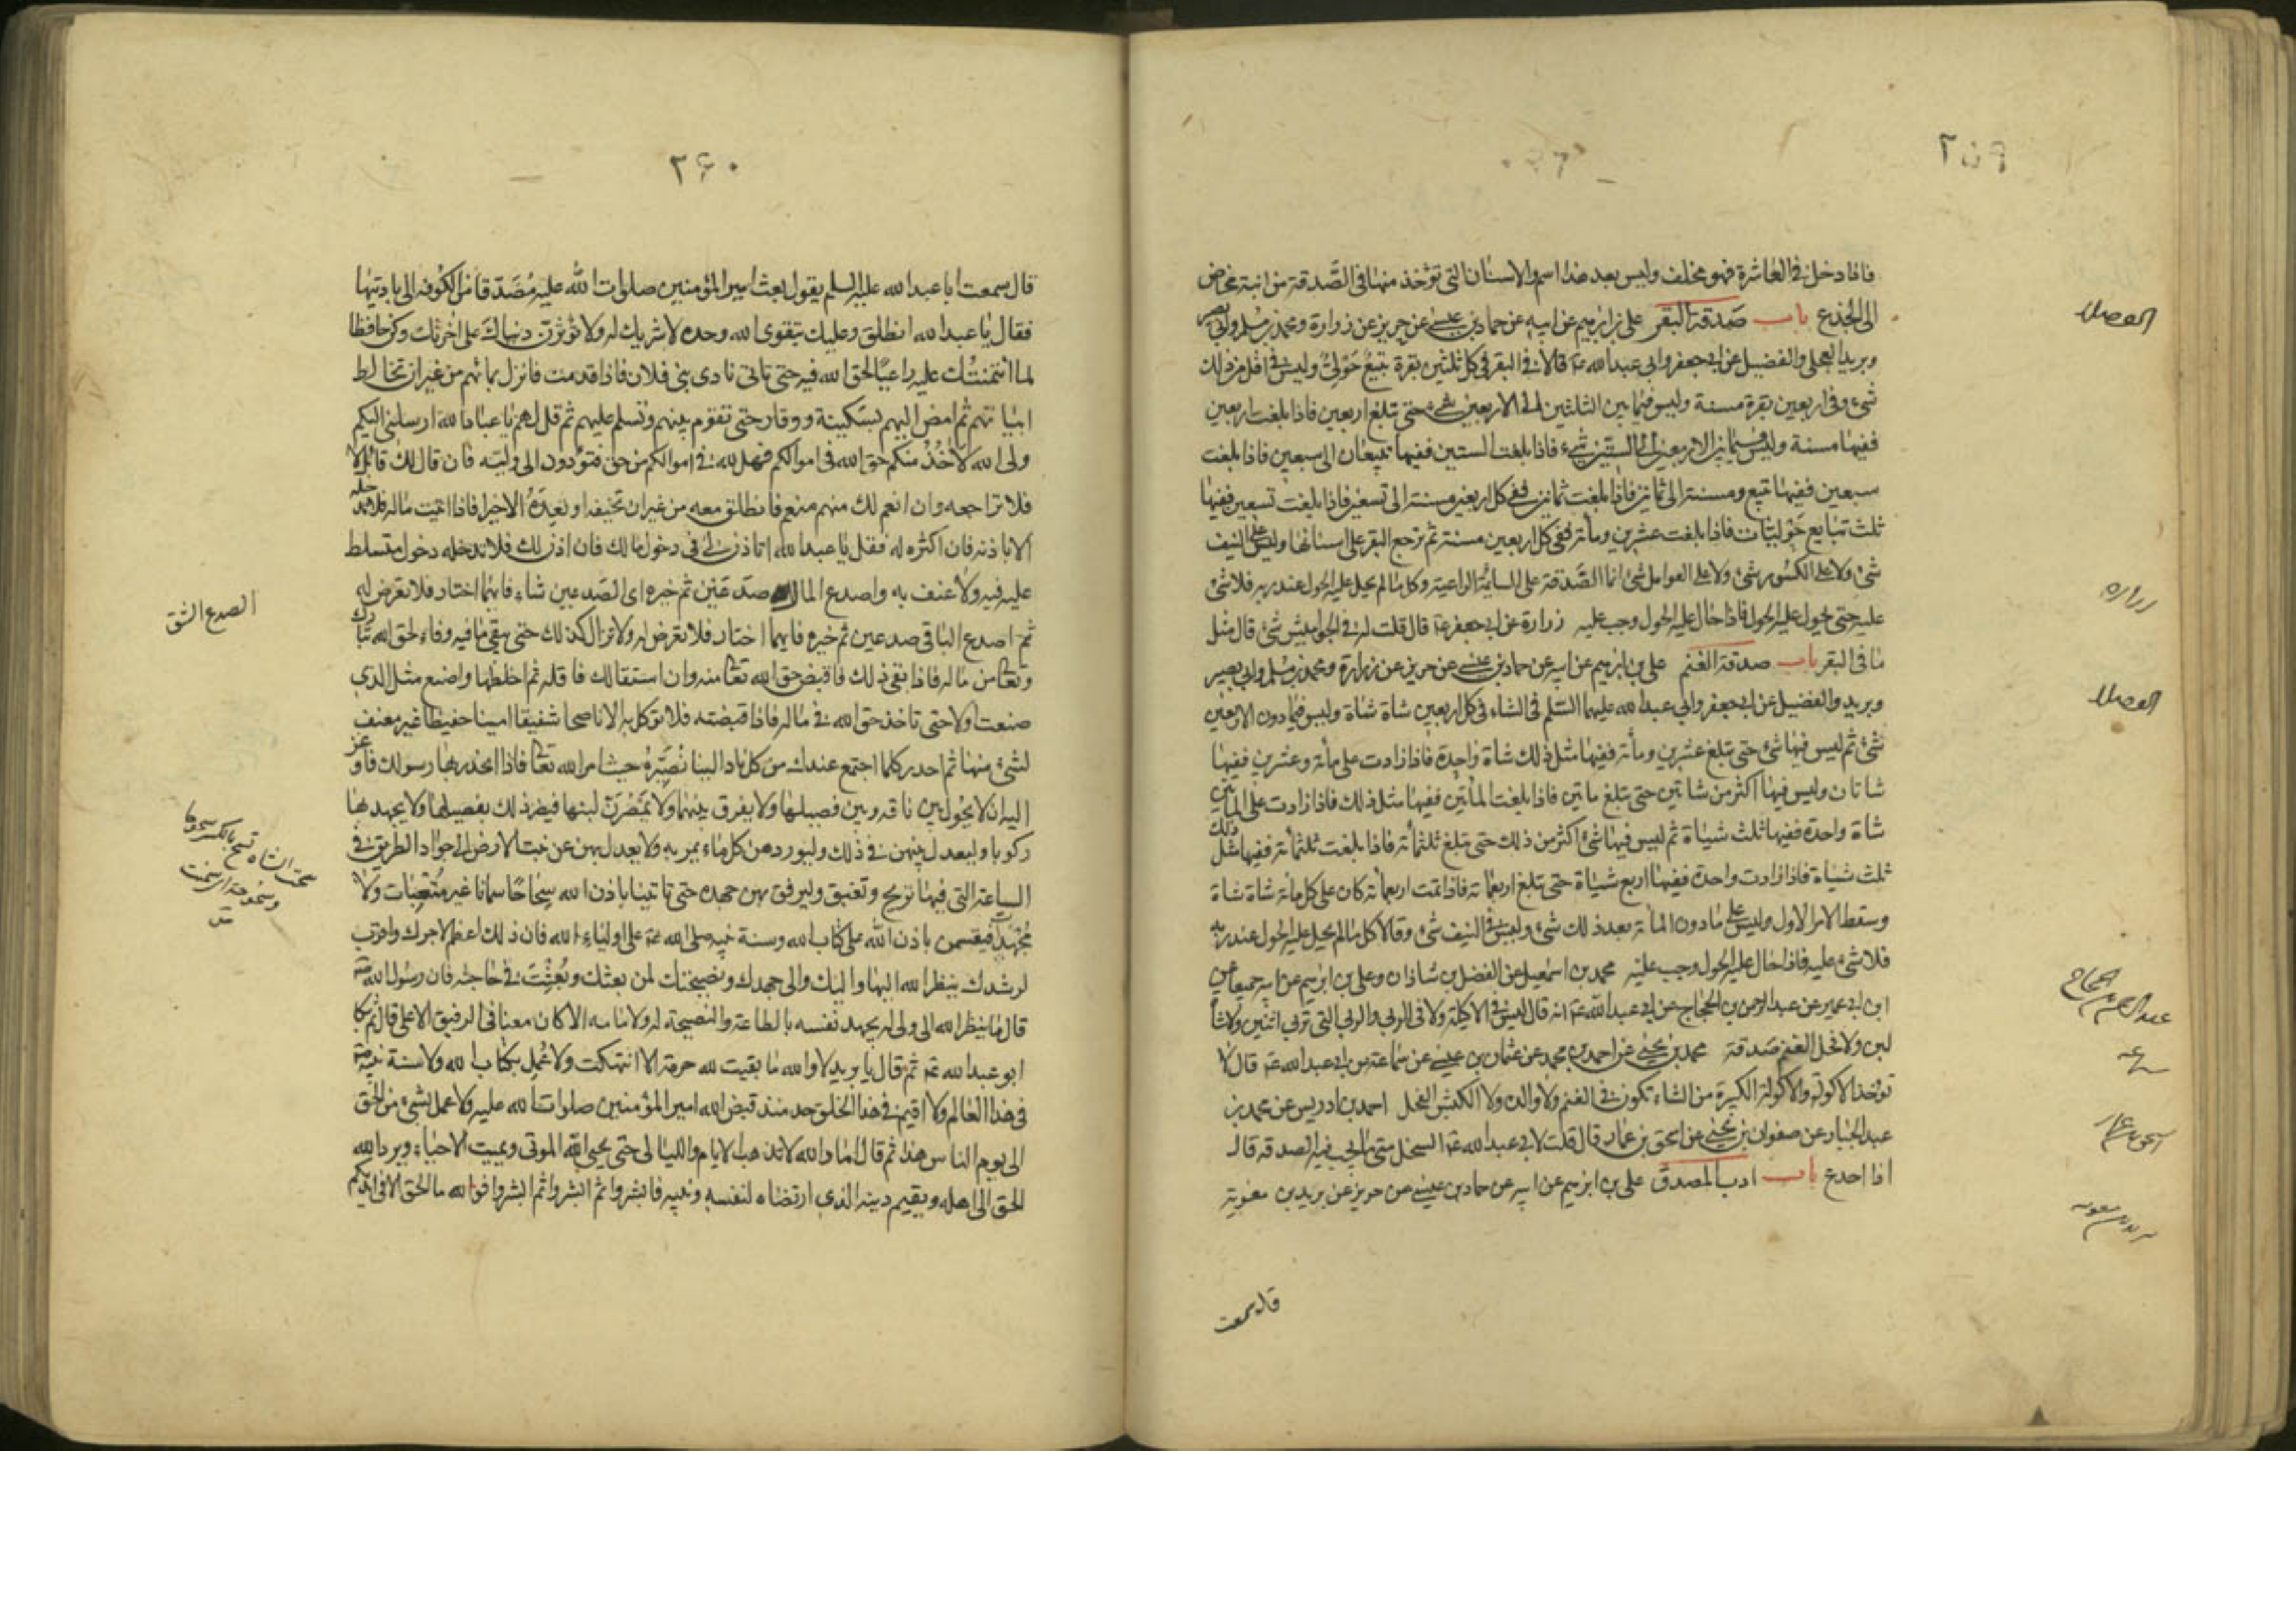 ٢٥٩
فاذا دخل في العاشرة فهو مخلف وليس بعد هذا اسم والاسنان التي تؤخذ منها في الصدقة من ابنة مخاض
الى الجذع باب صدقة البقر علي بن ابرهيم عن ابيه عن حماد بن عيسى عن حريز عن زرارة ومحمد بن مسلم وابي بصير
وبريد العجلي والفضيل عن ابي جعفر وابي عبدالله ع قالا في البقر في كل ثلثين بقرة تبيع حولي وليس في اقل من ذلك
شيء وفي اربعين بقرة مسنة وليس فيما بين الثلثين الى الاربعين شيء حتى تبلغ اربعين فاذا بلغت اربعين
ففيها مسنة وليس فيما بين الاربعين الى الستين شيء فاذا بلغت الستين ففيها تبيعان الى سبعين فاذا بلغت
سبعين ففيها تبيع ومسنة الى ثمانين فاذا بلغت ثمانين ففي كل اربعين مسنة الى تسعين فاذا بلغت تسعين ففيها
ثلث تبايع حوليات فاذا بلغت عشرين ومأة ففي كل اربعين مسنة ثم ترجع البقر على اسنانها وليس على النيف
شئ ولا على الكسور شئ ولا على العوامل شئ انما الصدقة على السائمة الراعية وكل ما لم يحل عليه الحول عند ربه فلا شئ
عليه حتى يحول عليه الحول فاذا حال عليه الحول وجب عليه زرارة عن ابي جعفر ع قال قلت له في الجواميس شئ قال مثل
ما في البقر باب صدقة الغنم علي بن ابرهيم عن ابيه عن حماد بن عيسى عن حريز عن زرارة ومحمد بن مسلم وابي بصير
وبريد والفضيل عن ابي جعفر وابي عبدالله عليهما السلم في الشاء في كل اربعين شاة شاة وليس فيما دون الاربعين
شئ ثم ليس فيها شئ حتى تبلغ عشرين ومأة ففيها مثل ذلك شاة واحدة فاذا زادت على مأة وعشرين ففيها
شاتان وليس فيها اكثر من شاتين حتى تبلغ ماتين فاذا بلغت المأتين ففيها مثل ذلك فاذا زادت على المأتين
شاة واحدة ففيها ثلث شياة ثم ليس فيها شئ اكثر من ذلك حتى تبلغ ثلثمأة فاذا بلغت ثلثمأة ففيها مثل ذلك
ثلث شياة فاذا زادت واحدة ففيها اربع شياة حتى تبلغ اربعمأة فاذا تمت اربعمأة كان على كل مأة شاة شاة
وسقط الامر الاول وليس على ما دون المأة بعد ذلك شئ وليس في النيف شئ وقالا كل ما لم يحل عليه الحول عند ربه
فلا شئ عليه فاذا حال عليه الحول وجب عليه محمد بن اسمعيل عن الفضل بن شاذان وعلي بن ابرهيم عن ابيه جميعا عن
ابن ابي عمير عن عبد الرحمن بن الحجاج عن ابي عبدالله ع انه قال ليس في الاكيلة ولا في الربى والربى التي تربي اثنين ولا شاة
لبن ولا فحل الغنم صدقة محمد بن يحيى عن احمد بن محمد عن عثمان بن عيسى عن سماعة عن ابي عبدالله ع قال لا
تؤخذ الاكولة والاكولة الكبيرة من الشاء تكون في الغنم ولا والد ولا الكبش الفحل احمد بن ادريس عن محمد بن
عبد الجبار عن صفوان بن يحيى عن اسحق بن عمار قال قلت لابي عبدالله ع السخل متى يجب فيه الصدقة قال
اذا اجذع باب ادب المصدق علي بن ابرهيم عن ابيه عن حماد بن عيسى عن حريز عن بريد بن معوية
قال سمعت
الفضلا
زراره
الفضلا
عبد الرحمن بن الحجاج
سماعه
اسحق بن عمار
بريد بن معويه
٢۶٠
قال سمعت ابا عبدالله عليه السلم يقول بعث امير المؤمنين صلوات الله عليه مصدقا من الكوفه الى باديتها
فقال يا عبدالله انطلق وعليك بتقوى الله وحده لا شريك له ولا تؤثرن دنياك على اخرتك وكن حافظا
لما ائتمنتك عليه راعيا لحق الله فيه حتى تاتى نادي بني فلان فاذا قدمت فانزل بمائهم من غير ان تخالط
ابياتهم ثم امض اليهم بسكينة ووقار حتى تقوم بينهم وتسلم عليهم ثم قل لهم يا عباد الله ارسلني اليكم
ولي الله لآخذ منكم حق الله في اموالكم فهل لله في اموالكم من حق فتؤدون الى وليه فان قال لك قائل لا
فلا تراجعه وان انعم لك منهم منعم فانطلق معه من غير ان تخيفه او تعده الا خيرا فاذا اتيت ماله فلا تدخله
الا باذنه فان اكثره له فقل يا عبدالله اتاذن لي في دخول مالك فان اذن لك فلا تدخله دخول متسلط
عليه فيه ولا عنف به واصدع المال صدعين ثم خيره اي الصدعين شاء فايهما اختار فلا تعرض له
ثم اصدع الباقي صدعين ثم خيره فايهما اختار فلا تعرض له ولا تزال كذلك حتى يبقى ما فيه وفاء لحق الله تبارك
وتعا من ماله فاذا بقى ذلك فاقبض حق الله تعا منه وان استقالك فاقله ثم اخلطها واصنع مثل الذي
صنعت اولا حتى تاخذ حق الله في ماله فاذا قبضته فلا توكل به الا ناصحا شفيقا امينا حفيظا غير معنف
لشئ منها ثم احدر كلما اجتمع عندك من كل ناد الينا نصيره حيث امر الله تعا فاذا انحدر بها رسولك فاوعز
اليه ان لا يحولن بين ناقه وبين فصيلها ولا يفرق بينهما ولا يمصرن لبنها فيضر ذلك بفصيلها ولا يجهد بها
ركوبا وليعدل بينهن في ذلك وليوردهن كل ماء يمر به ولا يعدل بهن عن نبت الارض الى جواد الطريق في
الساعة التي فيها تريح وتغبق وليرفق بهن جهده حتى تاتينا باذن الله سحاحا سمانا غير متعبات ولا
مجهدات فيقسمن باذن الله على كتاب الله وسنة نبيه صلى الله عليه على اولياء الله فان ذلك اعظم لاجرك واقرب
لرشدك ينظر الله اليها واليك والى جهدك ونصيحتك لمن بعثك وبعثت في حاجته فان رسول الله ص
قال ما ينظر الله الى ولي له يجهد نفسه بالطاعة والنصيحة له ولامامه الا كان معنا في الرفيق الاعلى قال ثم بكا
ابو عبدالله ع ثم قال يا بريد لا والله ما بقيت لله حرمة الا انتهكت ولا عمل بكتاب الله ولا سنة نبيه
في هذا العالم ولا اقيم في هذا الخلق حد منذ قبض الله امير المؤمنين صلوات الله عليه ولا عمل بشئ من الحق
الى يوم الناس هذا ثم قال اما والله لا تذهب الايام والليالي حتى يحيي الله الموتى ويميت الاحياء ويرد الله
الحق الى اهله ويقيم دينه الذي ارتضاه لنفسه ونبيه فابشروا ثم ابشروا ثم ابشروا فوالله ما الحق الا في ايديكم
الصدع الشق
سحت الشاه تسح بالكسر سحوحا
وسحوحة اى سمنت